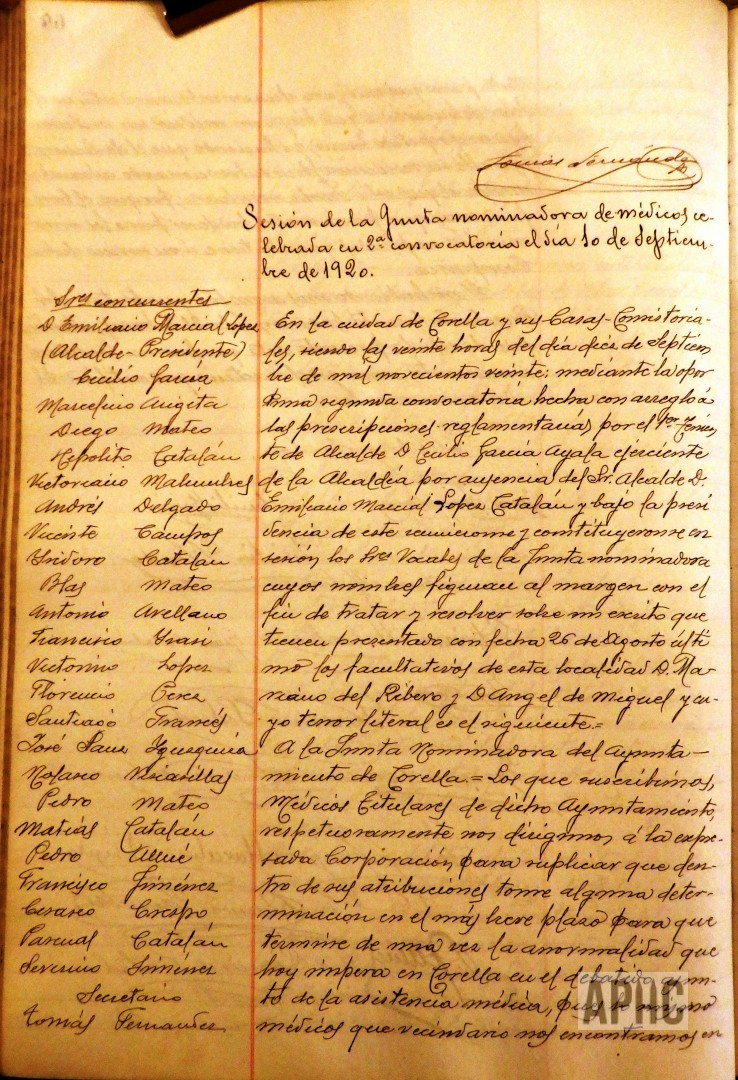 Tomás Fernández
Sesión de la Junta nominadora de médicos ce-
lebrada en 2ª convocatoria el día 10 de Septiem-
bre de 1920.
Sres concurrentes
D. Emiliano Marcial Lopez
(Alcalde-Presidente)
Cecilio García
Marcelino Arigita
Diego Mateo
Hipolito Catalán
Victoriano Malumbres
Andrés Delgado
Vicente Campos
Isidoro Catalán
Blas Mateo
Antonio Arellano
Francisco
Victorino Lopez
Florencio Perez
Santiago Francés
José Sanz
Nolasco
Pedro Mateo
Matías Catalán
Pedro Allué
Francisco Jiménez
Crespo
Pascual Catalán
Severino Jiménez
Secretario
Tomás Fernandez
En la ciudad de Corella y sus Casas-Consistoria-
les, siendo las veinte horas del día diez de Septiem
bre de mil novecientos veinte; mediante la opor
tuna segunda convocatoria hecha con arreglo á
las prescripciones reglamentarias por el 1er Tenien
te de Alcalde D. Cecilio García Ayala ejerciente
de la Alcaldía por ausencia del Sr. Alcalde D.
Emiliano Marcial Lopez Catalán y bajo la presi
dencia de este reunieronse y constituyeronse en
sesión los Sres Vocales de la Junta nominadora
cuyos nombres figuran al margen con el
fin de tratar y resolver sobre un escrito que
tienen presentado con fecha 26 de Agosto últi
mo los facultativos de esta localidad D. Ma-
riano del Ribero y D. Angel de Miguel y cu-
yo tenor literal es el siguiente.=
A la Junta Nominadora del Ayunta-
miento de Corella.= Los que suscribimos,
Médicos Titulares de dicho Ayuntamiento,
respetuosamente nos dirigimos á la expre-
sada Corporación, para suplicar que den-
tro de sus atribuciones tome alguna deter-
minación en el más breve plazo para que
termine de una vez la anormalidad que
hoy impera en Corella en el debatido asun-
to de la asistencia médica,
médicos que vecindario nos encontramos en
APHC